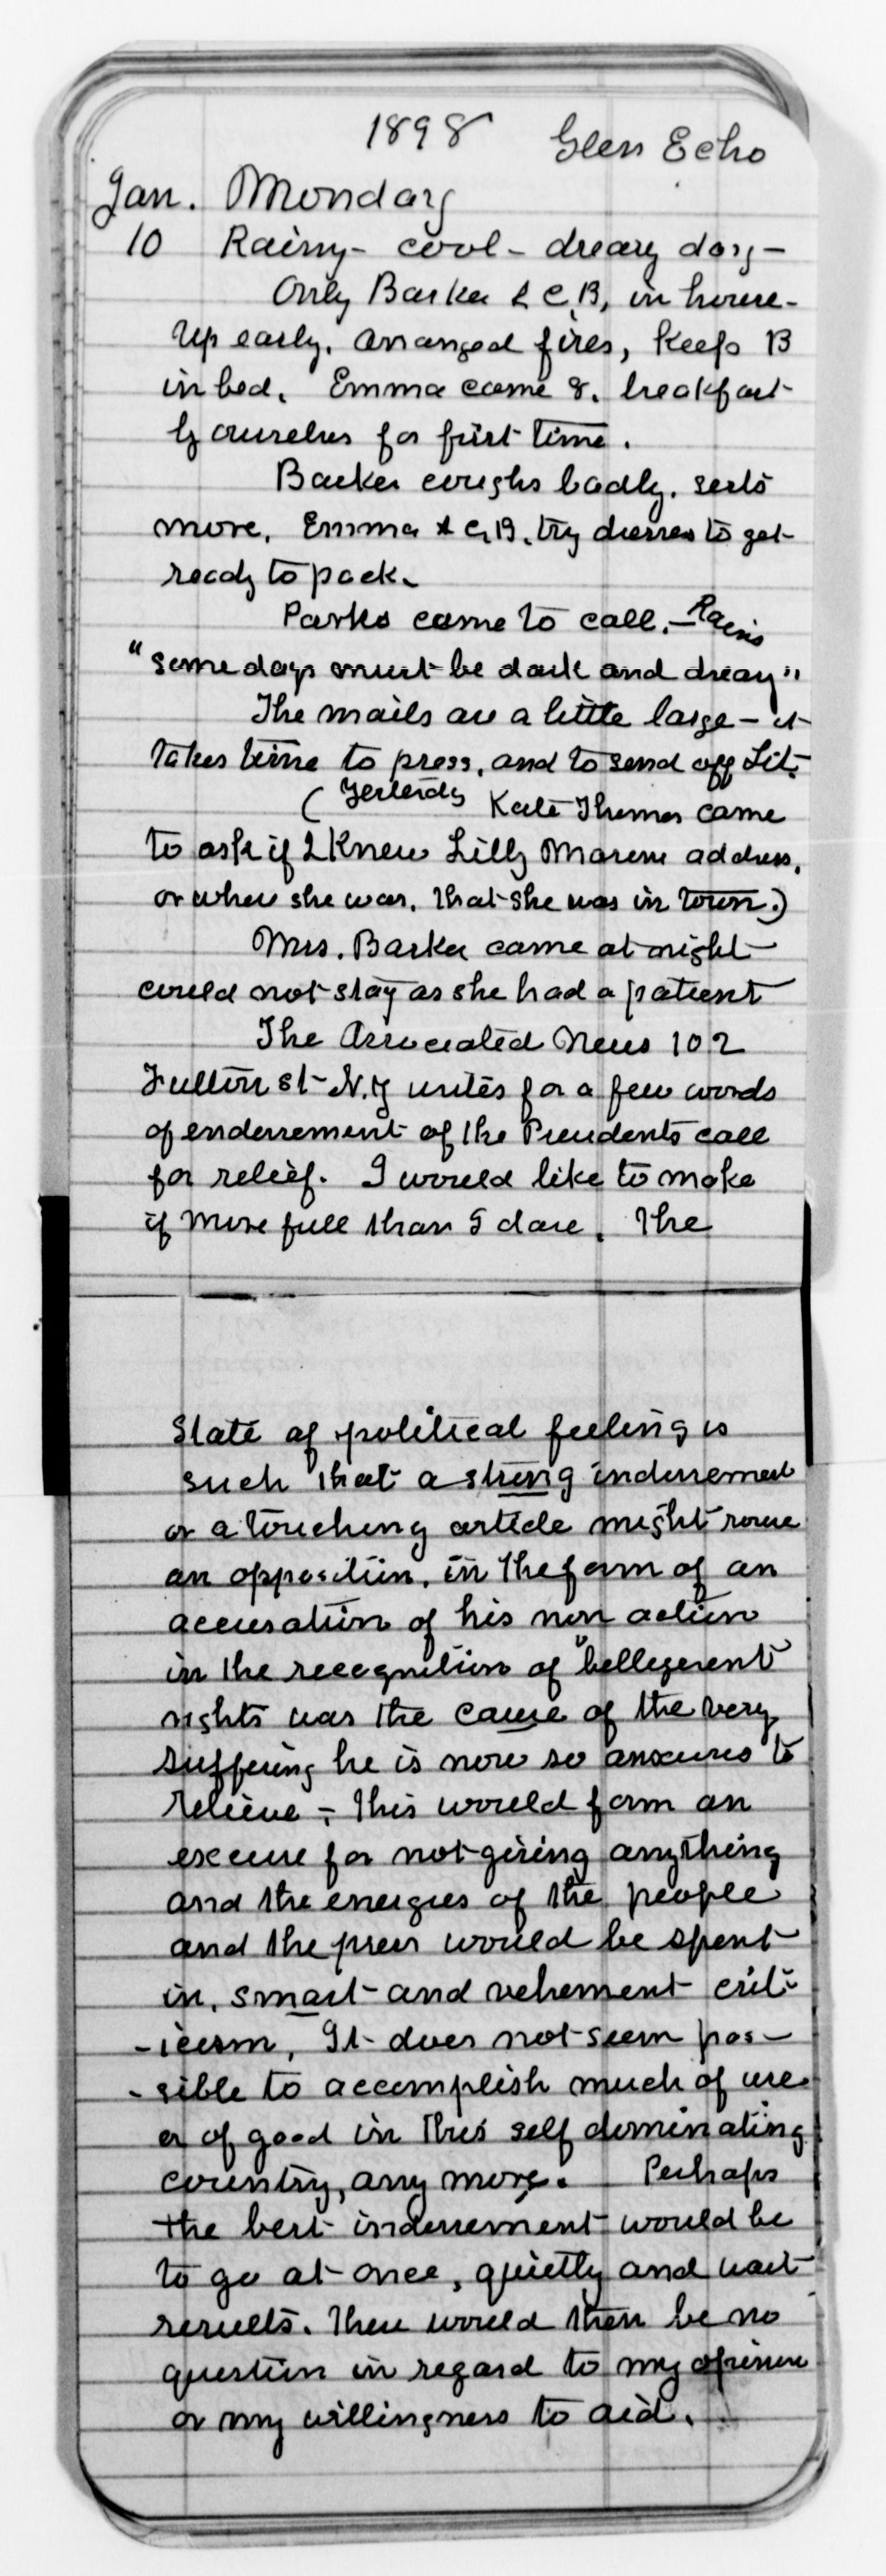 1898 Glen Echo
Jan. Monday
10 Rainy - cool - dreary day -
Only Barker & C.B, in house -
Up early. arranged fires, keep B
in bed. Emma came 8. breakfast
by ourselves for first time.
Barker coughs badly.
more. Emma & C.B. try dresses to get
ready to pack.
Parks came to call. - Rains
"some days must be dark and dreary"
The mails are a little large - it
takes time to press, and to send off Lit.
(Yesterday Kate Thomas came
to ask if I knew Lilly address,
or where she was, that she was in town.)
Mrs. Barker came at night
could not stay as she had a patient
The Associated News 102
Fulton st N.Y writes for a few words
of endorsement of the Presidents call
for relief. I would like to make
it more full than I dare. The
State of political feeling is
such that a strong indorsement
or a touching article might rouse
an opposition, in the form of an
accusation of his non action
in the recognition of "belligerent"
rights was the cause of the very
suffering he is now so anxious to
relieve - this would form an
excuse for not giving anything
and the energies of the people
and the press would be spent
in, smart and vehement crit-
-icism, It does not seem pos-
-sible to accomplish much of use
or of good in this self dominating
country, any more. Perhaps
the best indorsement would be
to go at once, quietly and wait
results. There would then be no
question in regard to my opinion
or my willingness to aid.